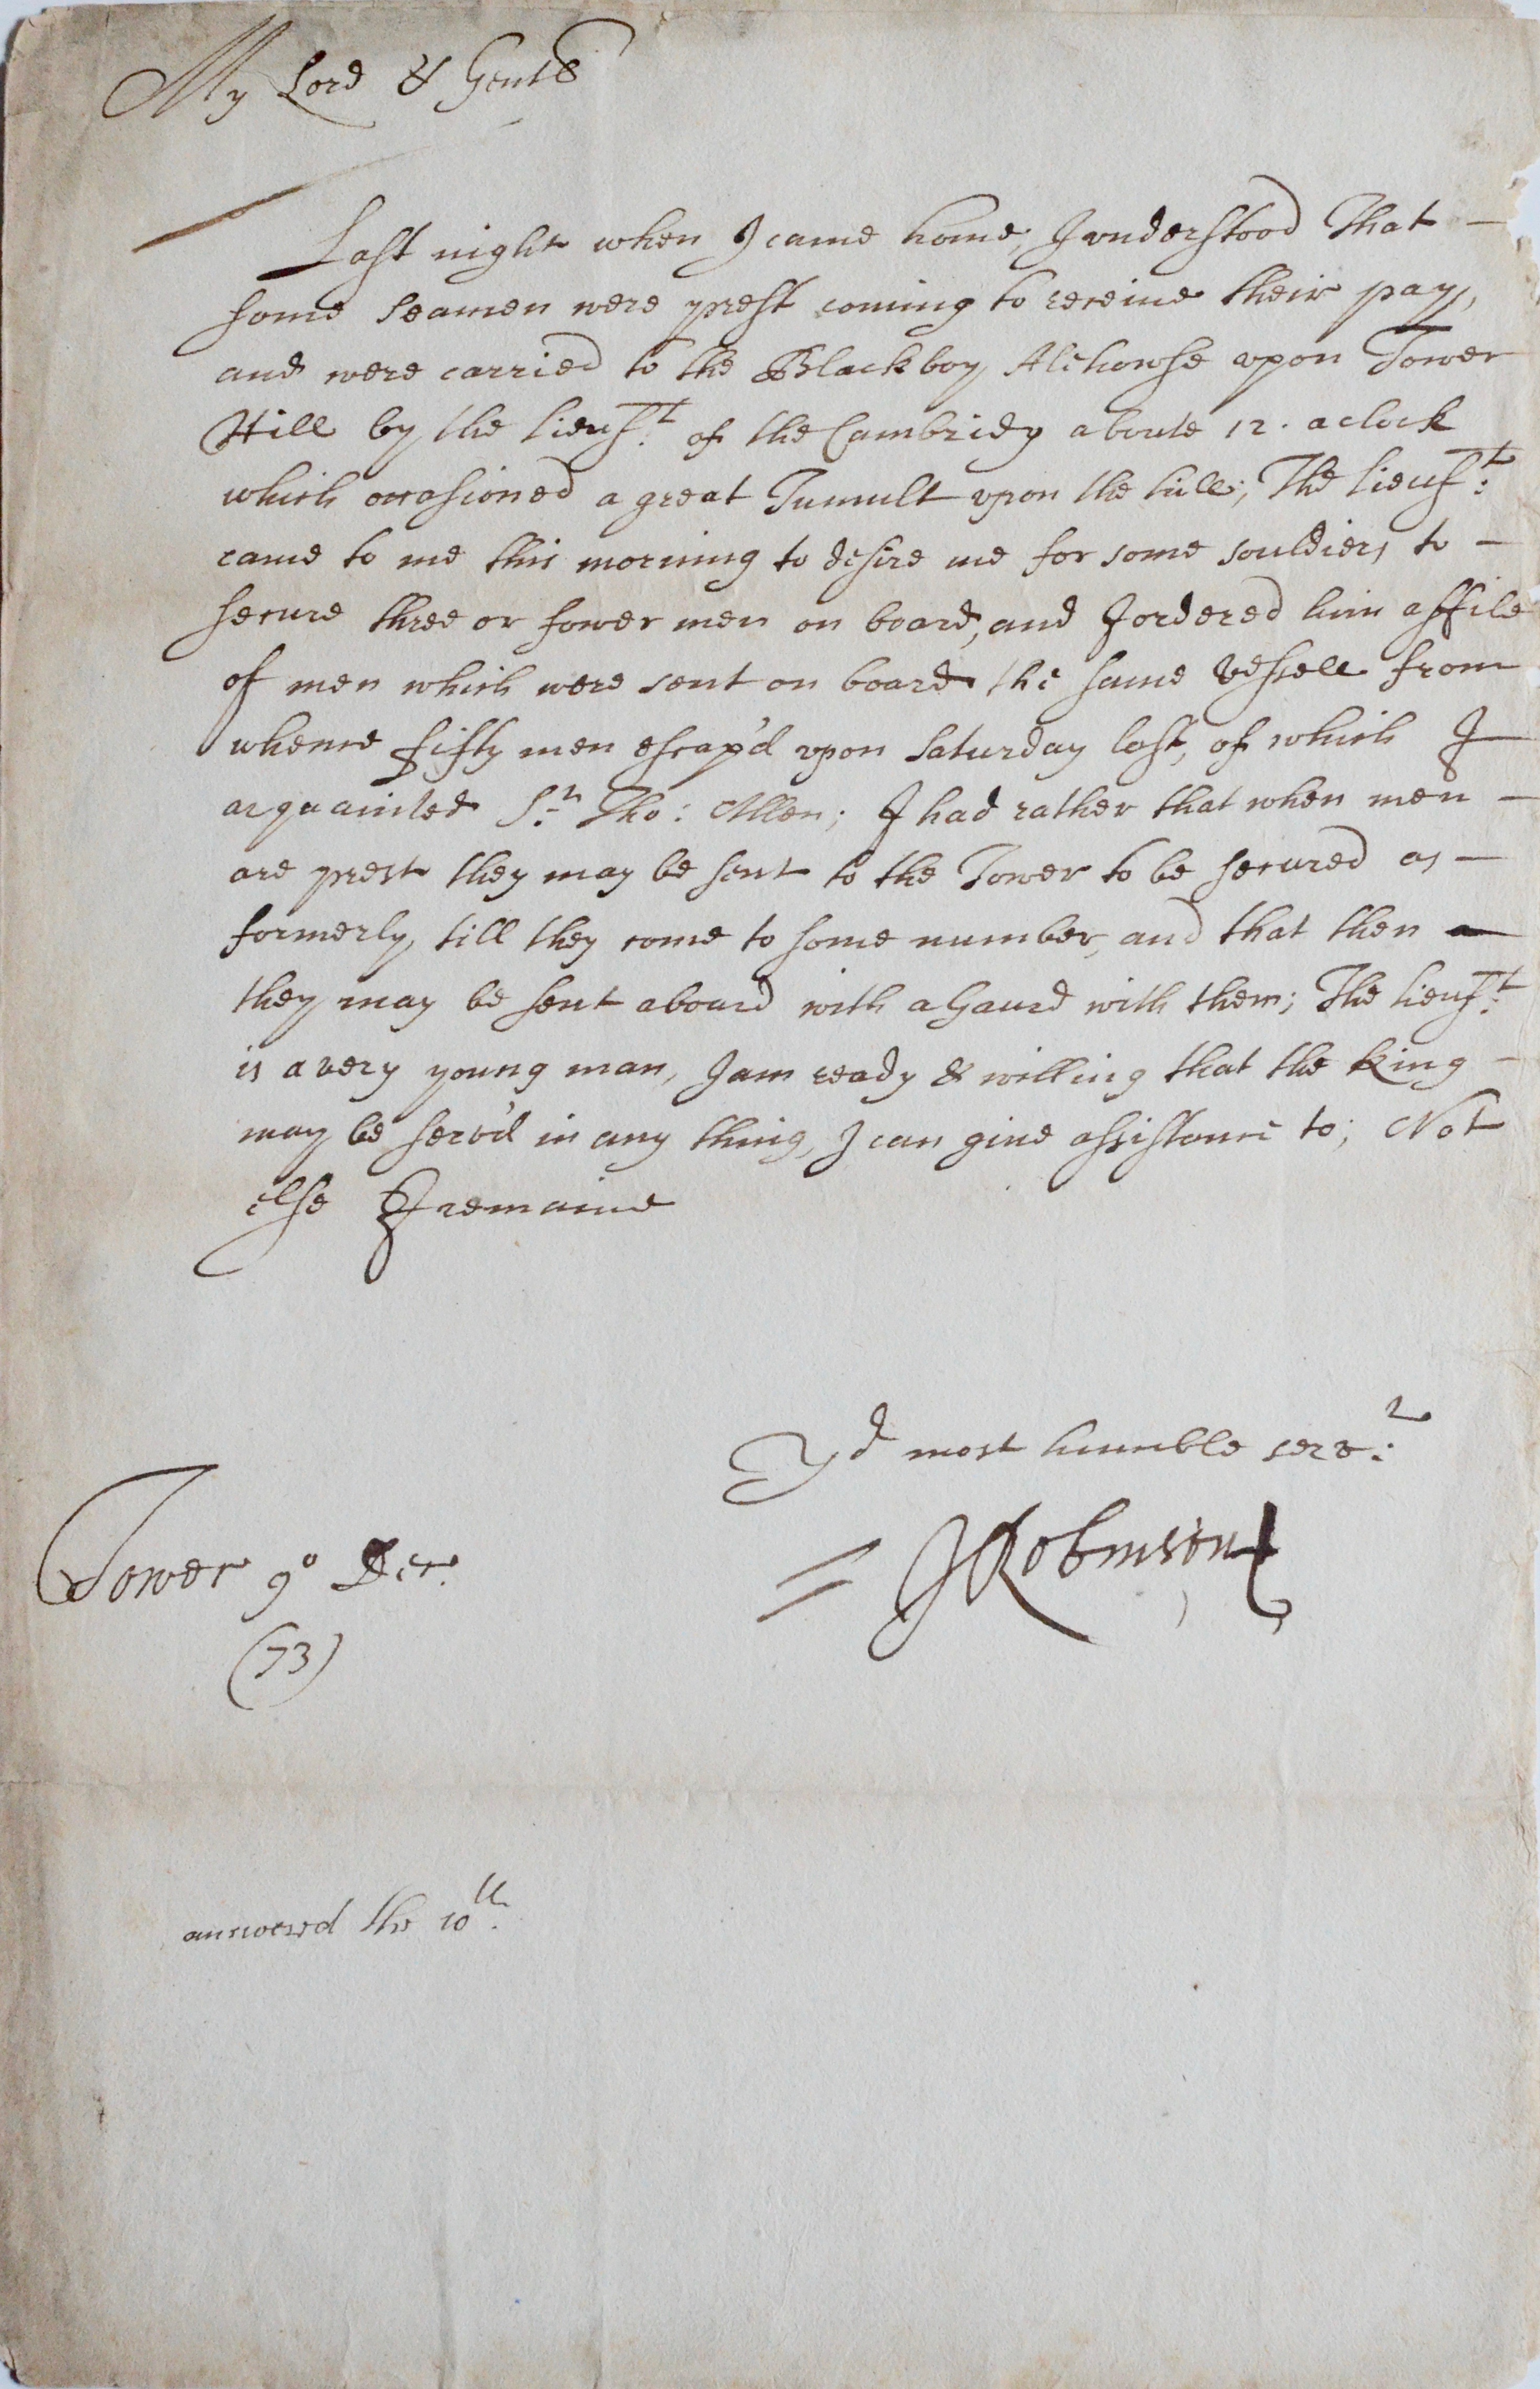 My Lord & Gents
Last night when I came home, I understood That —
some seamen were prest coming to receive their pay,
and were carried to the Blackboy Alehowse vpon Tower
Hill by the Lieut.t of the Cambridg aboute 12. aclock
which occasioned a great Tumult vpon the hill; The Lieut.t
came to me this morning to desire me for some souldiers to —
secure three or fower men on board, and I ordered him a ffile
of men which were sent on board the same Vessell from
whence fifty men escap'd vpon Saturday last, of which I
acquainted Sr. Tho: Allen; I had rather that when men —
are prest they may be sent to the Tower to be secured as —
formerly, till they come to some number, and that then —
they may be sent aboard with a Gaurd with them; The Lieut.t
is a very young man, I am ready & willing that the King —
may be serv'd in any thing, I can give assistance to; Not
else I remaine
Yr most humble serv:t
JRobinson
Tower 9o Dec.
(73)
answered the 10th.